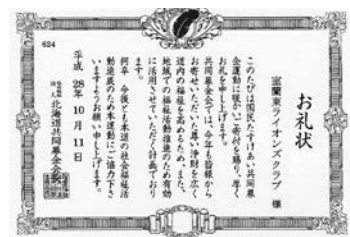 624
お礼状
室蘭東ライオンズクラブ 様
このたびは国民たすけあい共同募
金運動に暖かいご寄付を賜り、厚く
お礼を申し上げます。
共同募金会では、今年も皆様から
お寄せいただいた尊い浄財を広く
道内の福祉を高めるため、また、
地域での福祉活動推進のため有効
に活用させていただく計画でおり
ます。
何卒、今後とも本道の社会福祉活
動進展のため本運動にご協力下さ
いますようお願い申し上げます。
平成 28年 10月 11日
社会福祉法人 北海道共同募金会